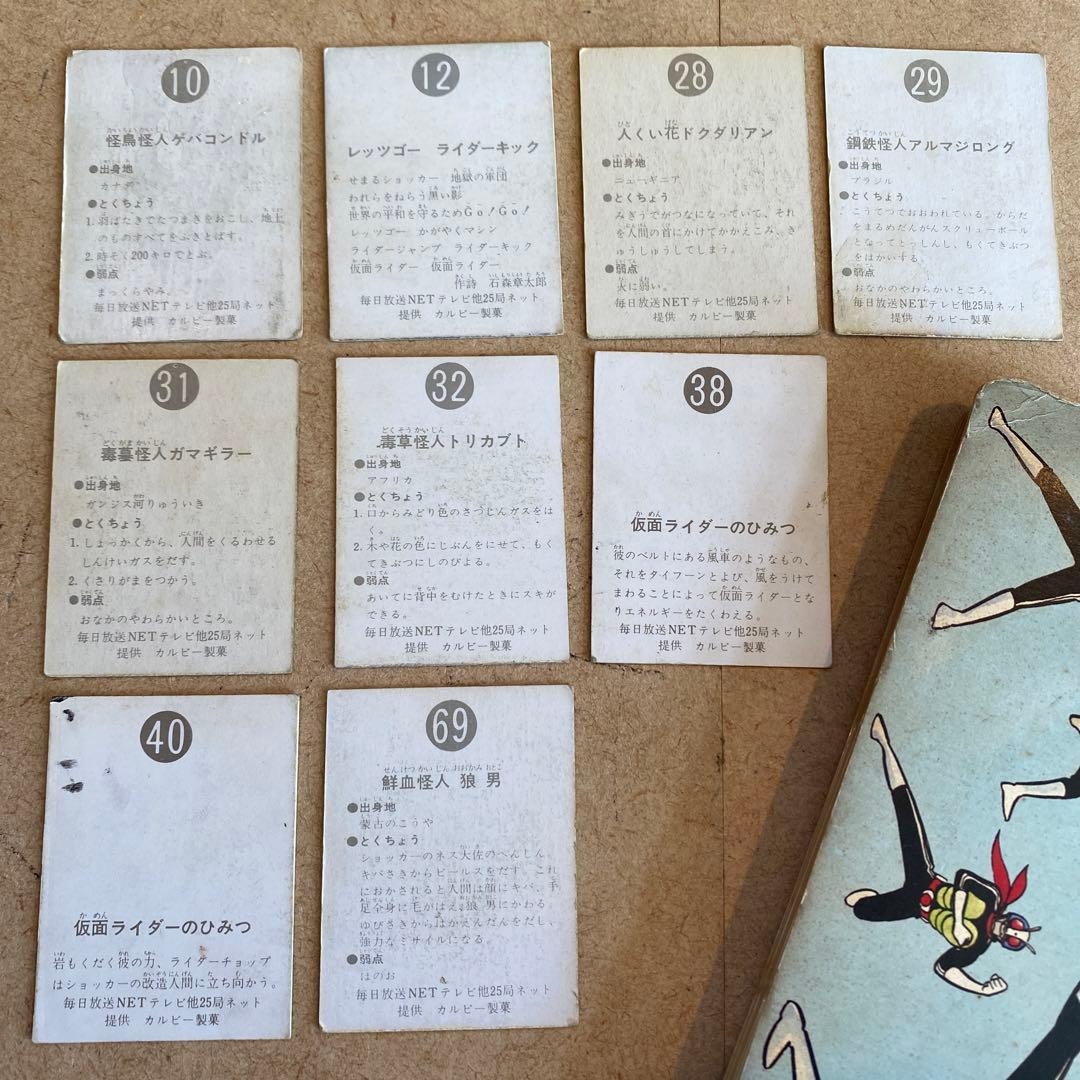 10
怪鳥怪人ゲバコンドル
●出身地
カナダ
●とくちょう
1. 羽ばたきでたつまきをおこし、地上
のものすべてをふきとばす。
2. 時そく200キロでとぶ。
●弱点
まっくらやみ。
毎日放送NETテレビ他25局ネット
提供 カルビー製菓
12
レッツゴー ライダーキック
せまるショッカー 地獄の軍団
われらをねらう黒い影
世界の平和を守るためGo!Go!
レッツゴー かがやくマシン
ライダージャンプ ライダーキック
仮面ライダー 仮面ライダー
作詩 石森章太郎
毎日放送NETテレビ他25局ネット
提供 カルビー製菓
28
人くい花ドクダリアン
●出身地
ニューギニア
●とくちょう
みぎうでがつなになっていて、それ
を人間の首にかけてかかえこみ、き
ゅうしゅうしてしまう。
●弱点
火に弱い。
毎日放送NETテレビ他25局ネット
提供 カルビー製菓
29
鋼鉄怪人アルマジロング
●出身地
ブラジル
●とくちょう
こうてつでおおわれている。からだ
をまるめだんがんスクリューボール
となってとっしんし、もくてきぶつ
をはかいする。
●弱点
おなかのやわらかいところ。
毎日放送NETテレビ他25局ネット
提供 カルビー製菓
31
毒蟇怪人ガマギラー
●出身地
ガンジス河りゅういき
●とくちょう
1. しょっかくから、人間をくるわせる
しんけいガスをだす。
2. くさりがまをつかう。
●弱点
おなかのやわらかいところ。
毎日放送NETテレビ他25局ネット
提供 カルビー製菓
32
毒草怪人トリカブト
●出身地
アフリカ
●とくちょう
1. 口からみどり色のさつじんガスをは
く。
2. 木や花の色にじぶんをにせて、もく
てきぶつにしのびよる。
●弱点
あいてに背中をむけたときにスキが
できる。
毎日放送NETテレビ他25局ネット
提供 カルビー製菓
38
仮面ライダーのひみつ
彼のベルトにある風車のようなもの、
それをタイフーンとよび、風をうけて
まわることによって仮面ライダーとな
りエネルギーをたくわえる。
毎日放送NETテレビ他25局ネット
提供 カルビー製菓
40
仮面ライダーのひみつ
岩もくだく彼の力、ライダーチョップ
はショッカーの改造人間に立ち向かう。
毎日放送NETテレビ他25局ネット
提供 カルビー製菓
69
鮮血怪人 狼男
●出身地
蒙古のこうや
●とくちょう
ショッカーのネス大佐のへんしん。
キバさきからビールスをだす。これ
におかされると人間は顔にキバ、手
足全身に毛がはえ、狼男にかわる。
ゆびさきからはかえんだんをだし、
強力なミサイルになる。
●弱点
ほのお
毎日放送NETテレビ他25局ネット
提供 カルビー製菓